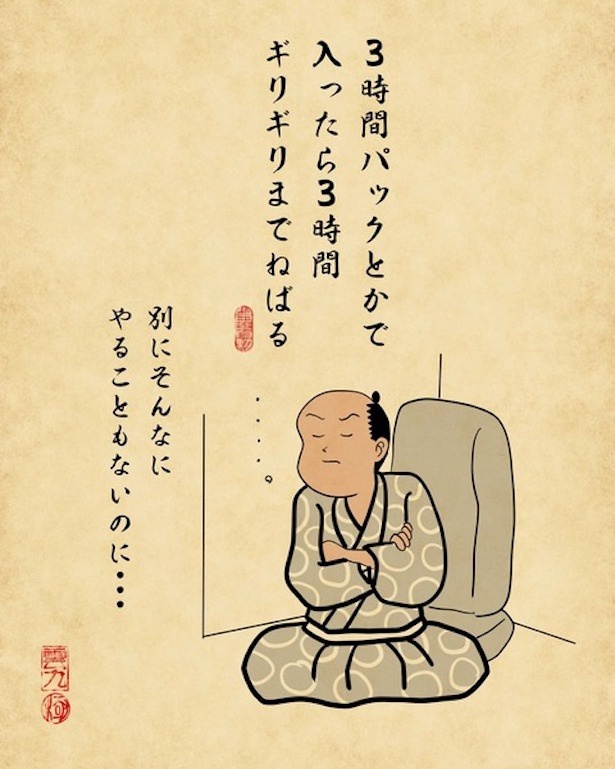 3時間パックとかで
入ったら3時間
ギリギリまでねばる
別にそんなに
やることもないのに・・・
・・・・。